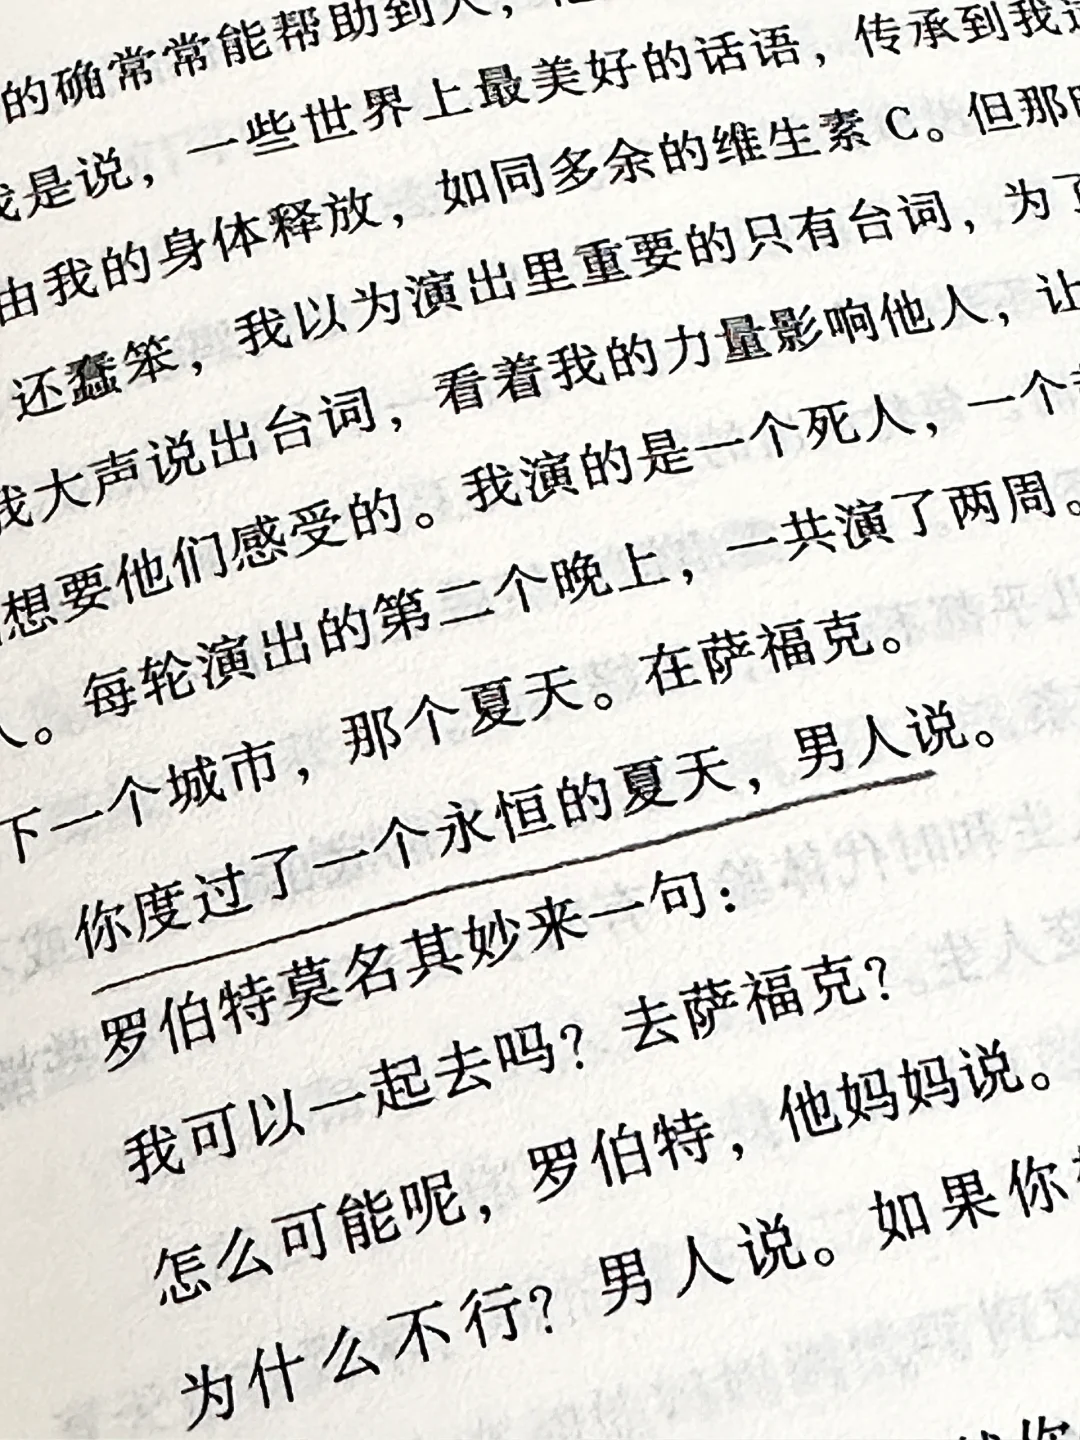 的确常常能帮助到人，
我是说，一些世界上最美好的话语，传承到我这
由我的身体释放，如同多余的维生素C。但那时
还蠢笨，我以为演出里重要的只有台词，为了
我大声说出台词，看着我的力量影响他人，让
想要他们感受的。我演的是一个死人，一个
人。每轮演出的第二个晚上，一共演了两周。
下一个城市，那个夏天。在萨福克。
你度过了一个永恒的夏天，男人说。
罗伯特莫名其妙来一句：
我可以一起去吗？去萨福克？
怎么可能呢，罗伯特，他妈妈说。
为什么不行？男人说。如果你